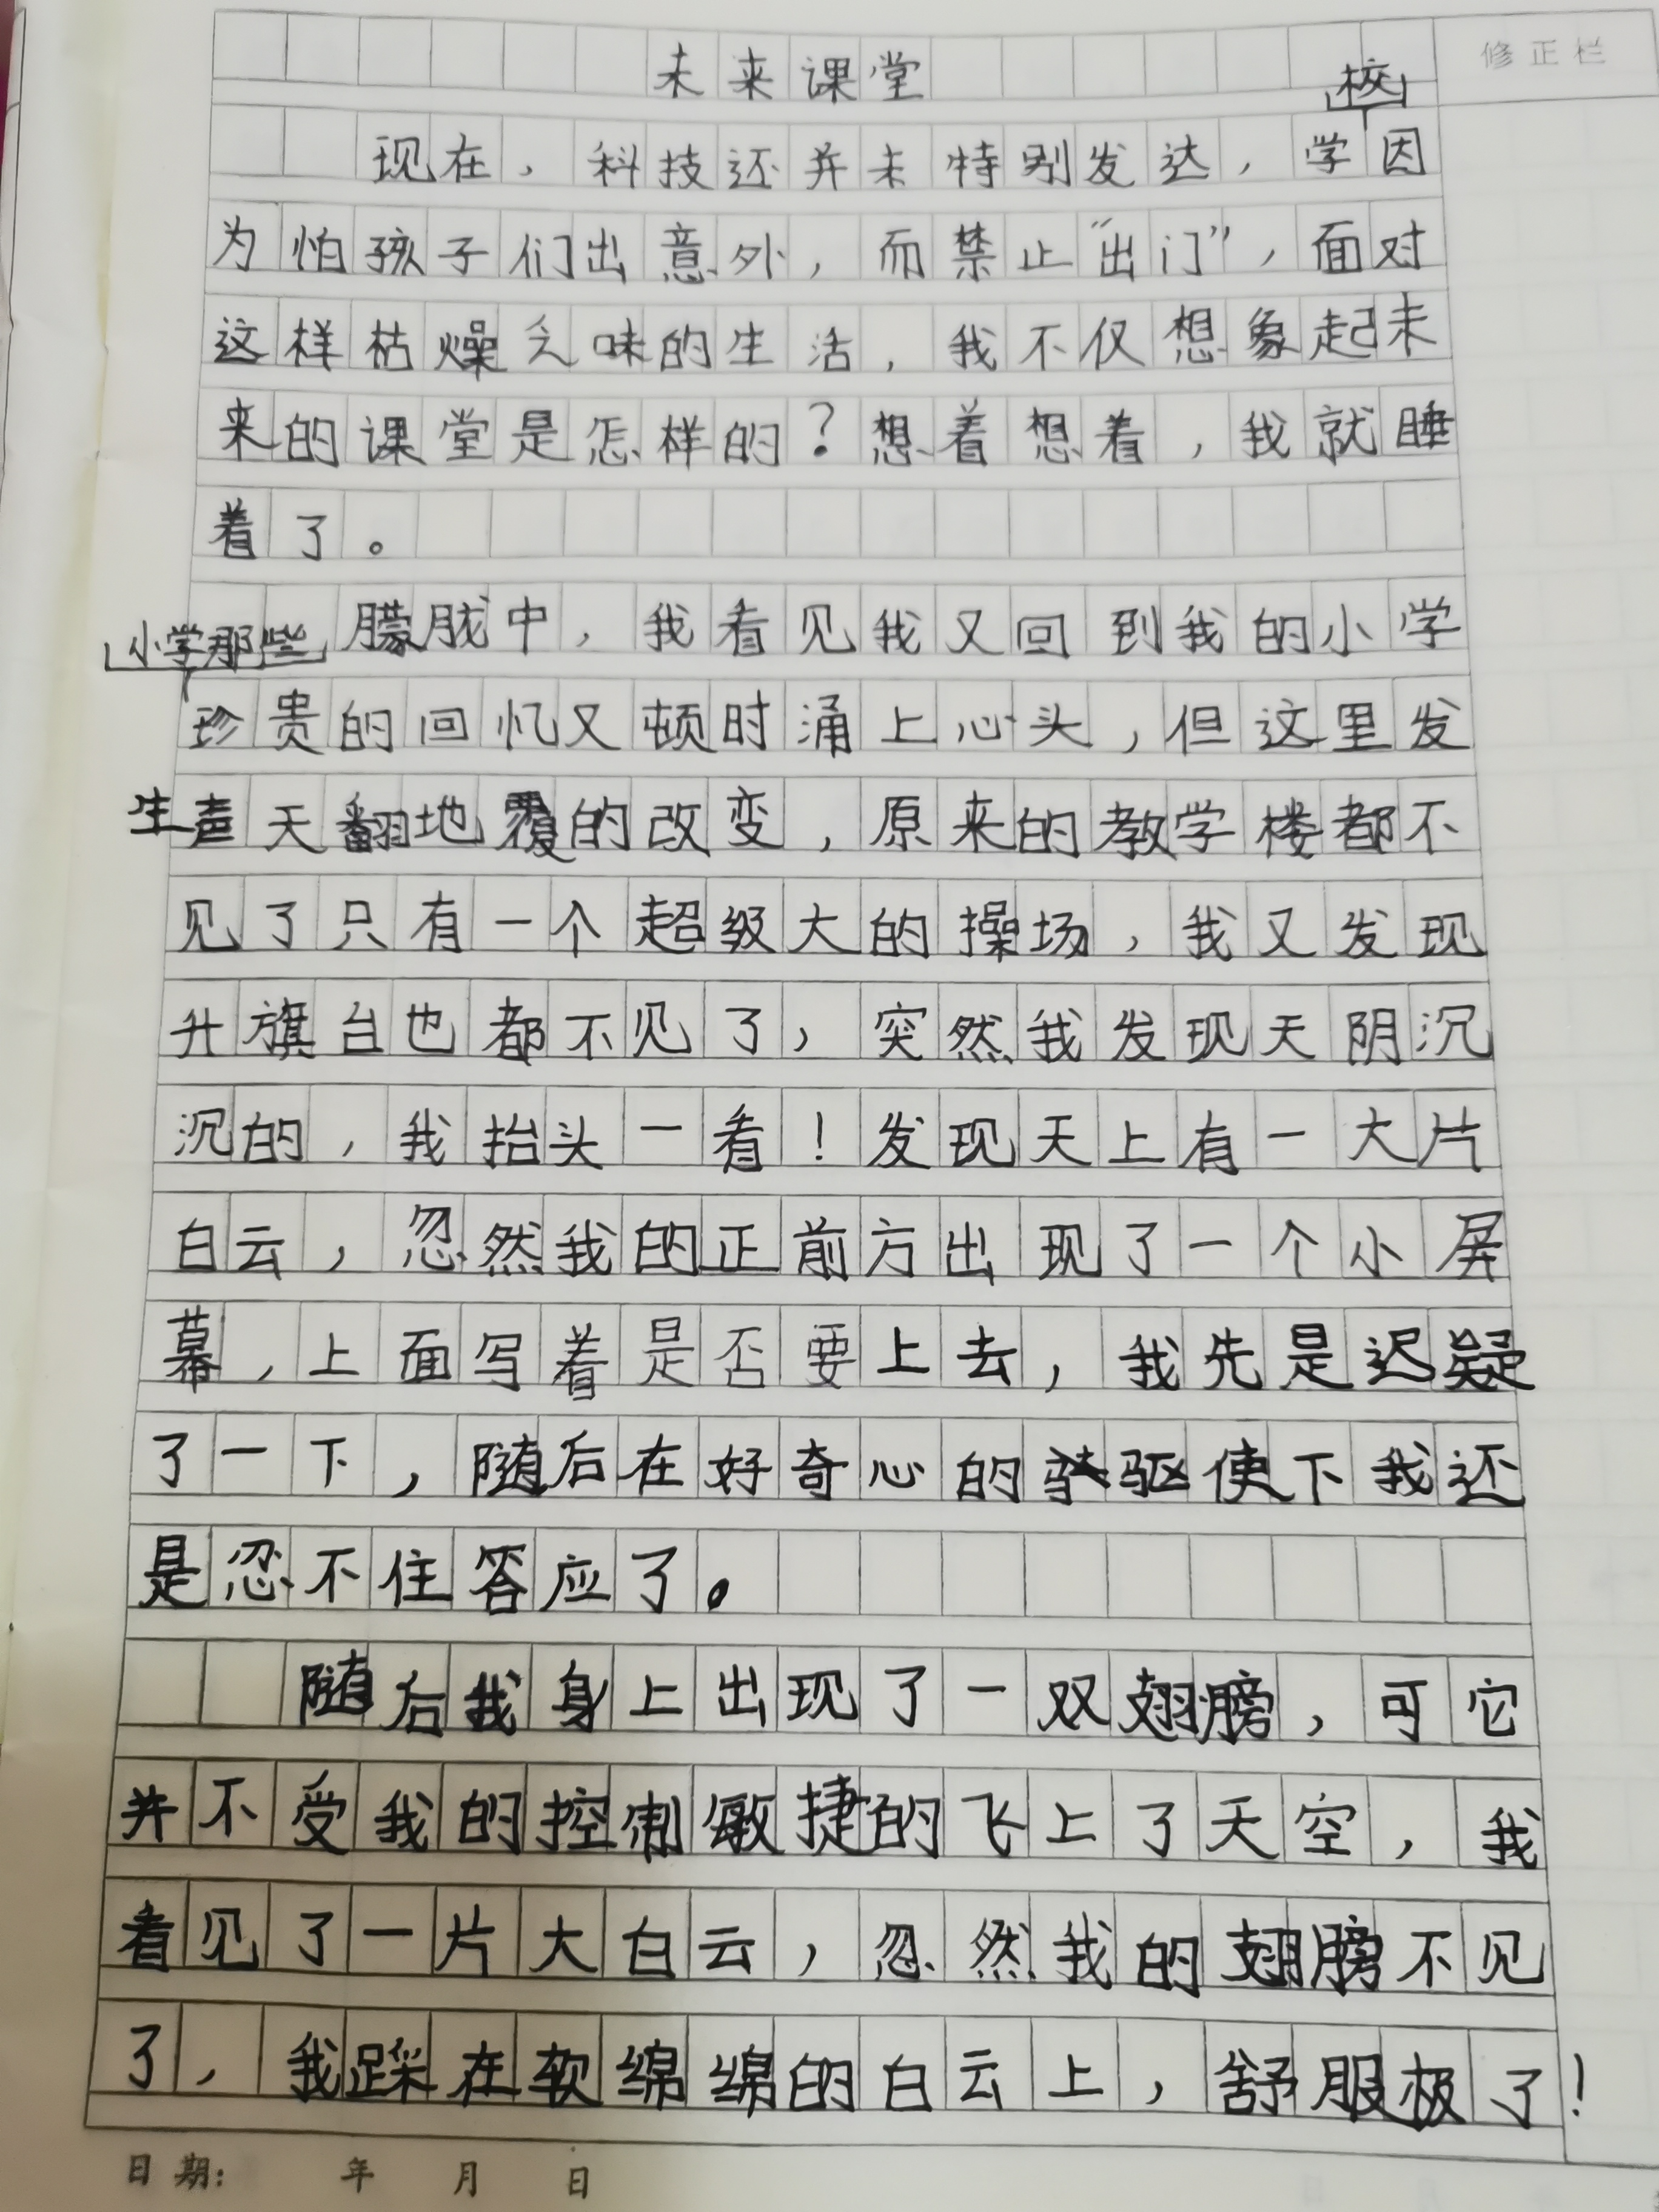 未来课堂
修正栏
校
现在，科技还并未特别发达，学因
为怕孩子们出意外，而禁止“出门”，面对
这样枯燥乏味的生活，我不仅想象起未
来的课堂是怎样的？想着想着，我就睡
着了。
朦胧中，我看见我又回到我的小学
小学那些
珍贵的回忆又顿时涌上心头，但这里发
生声天翻地覆的改变，原来的教学楼都不
见了只有一个超级大的操场，我又发现
升旗台也都不见了，突然我发现天阴沉
沉的，我抬头一看！发现天上有一大片
白云，忽然我的正前方出现了一个小屏
幕，上面写着是否要上去，我先是迟疑
了一下，随后在好奇心的驱使下我还
是忍不住答应了。
随后我身上出现了一双翅膀，可它
并不受我的控制敏捷的飞上了天空，我
看见了一片大白云，忽然我的翅膀不见
了，我踩在软绵绵的白云上，舒服极了！
日期： 年 月 日